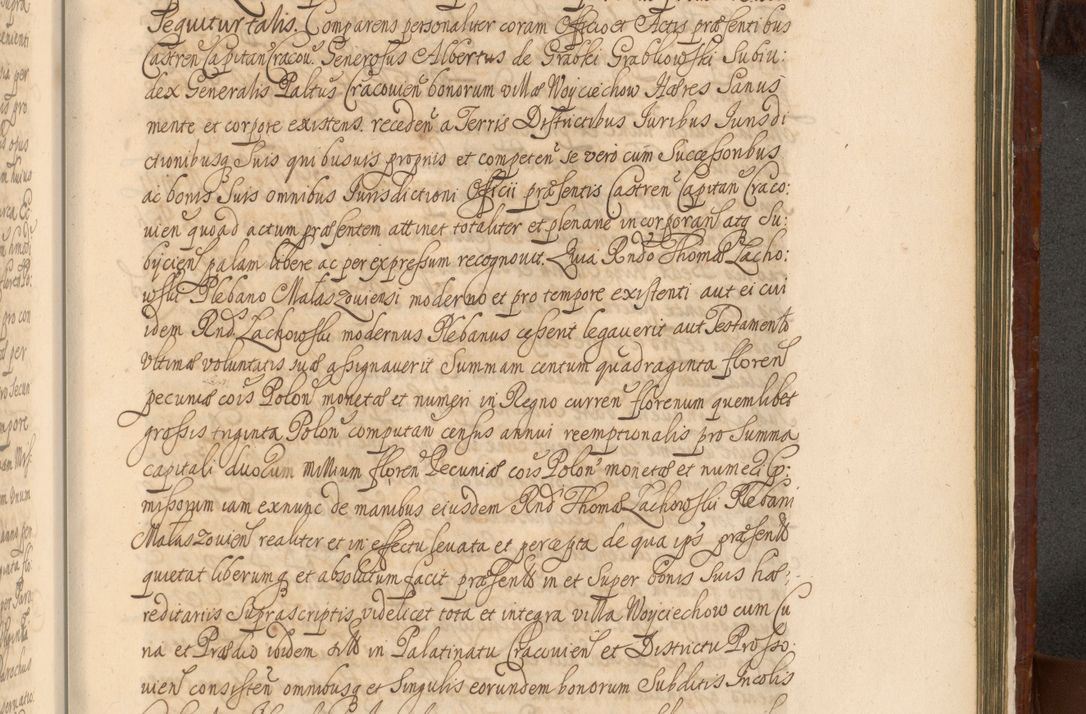 Sequitur talis. Comparens personaliter coram Officio et Actis præsentibus
Castren Capitan Cracou. Generosus Albertus de Grabki Grabkowski Subiu:
dex Generalis Pal̃tus Cracovien bonorum villæ Woyciechow Hæres Sanus
mente et corpore existens. receden a Terris Districtibus Iuribus Iurisdi
ctionibusq̃ Suis quibusuis proprijs et competen Se vero cum Successoribus
ac bonis Suis omnibus Iurisdictioni Officii præsentis Castren Capitan Craco:
uien quoad actum præsentem attinet totaliter et plenarie incorporans atq̃ Su:
bijcien palam libere ac per expressum recognovit. Quia Rndo Thomæ Zacho:
wski Plebano Małaszoviensi moderno et pro tempore existenti aut ei cui
idem Rnd Zachowski modernus Plebanus cessent legaverit aut Testamento
vltimæ voluntatis suæ assignaverit Summam centum quadraginta floren
pecuniæ cois Polon monetæ et numeri in Regno curren florenum quemlibet
grossis triginta Polon computan census annui reemptionalis pro Summa
capitali duocum Millium floren Pecuniæ cois Polon monetæ et numeri Sp:
missorum iam exnunc de manibus eiusdem Rndi Thomæ Zachowski Plebani
Małaszovien realiter et in effectu levata et percepta de qua ips præsentib
quietat liberumq̃ et absolutum facit præsentib in et Super bonis Suis hæ:
reditariis Suprascriptis videlicet tota et integra villa Woyciechow cum Cu
ria et Prædio ibidem in Palatinatu Cracovien et Districtu Prosso:
uien consisten omnibusq̃ et Singulis eorundem bonorum Subditis Incolis